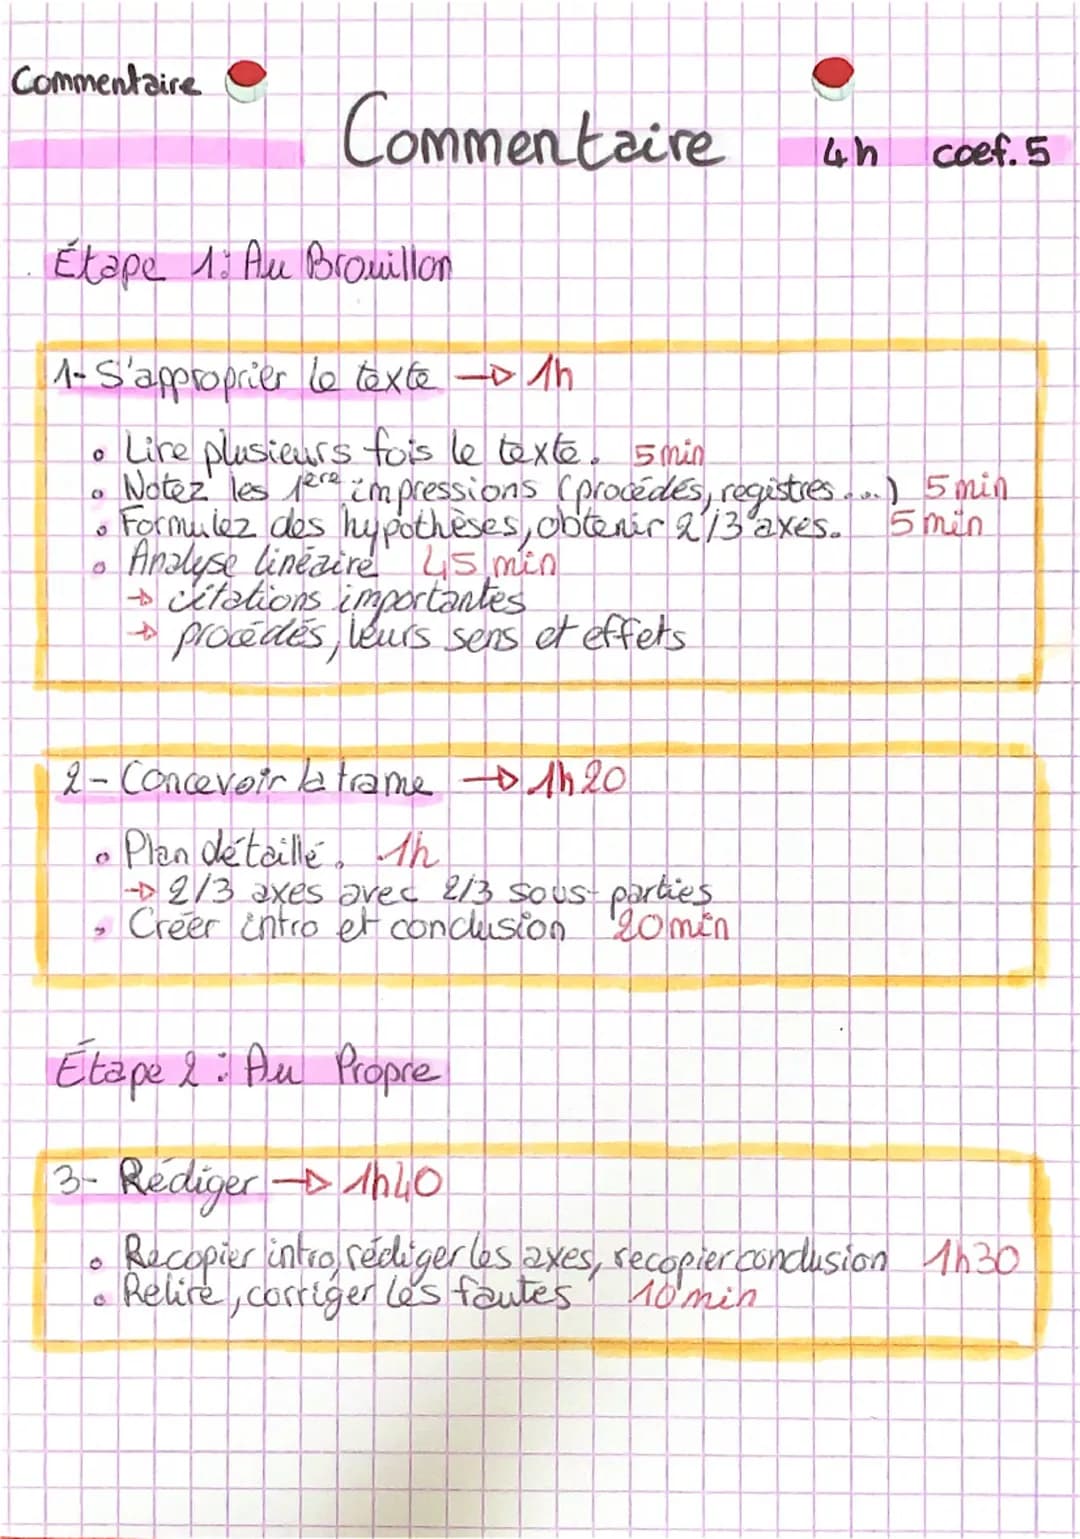 Commentaire
Commentaire
4h coef. 5
Étape 1: Au Brouillon
1- S'approprier le texte → 1h
• Lire plusieurs fois le texte. 5min
• Notez les 1ère impressions (procédés, registres...) 5min
• Formulez des hypothèses, obtenir 2/3 axes. 5min
• Analyse linéaire 45 min
→ citations importantes
→ procédés, leurs sens et effets
2- Concevoir la trame → 1h20
• Plan détaillé. 1h
→ 2/3 axes avec 2/3 sous-parties
• Créer intro et conclusion 20min
Étape 2 : Au Propre
3- Rédiger → 1h40
• Recopier intro, rédiger les axes, recopier conclusion 1h30
• Relire, corriger les fautes 10min